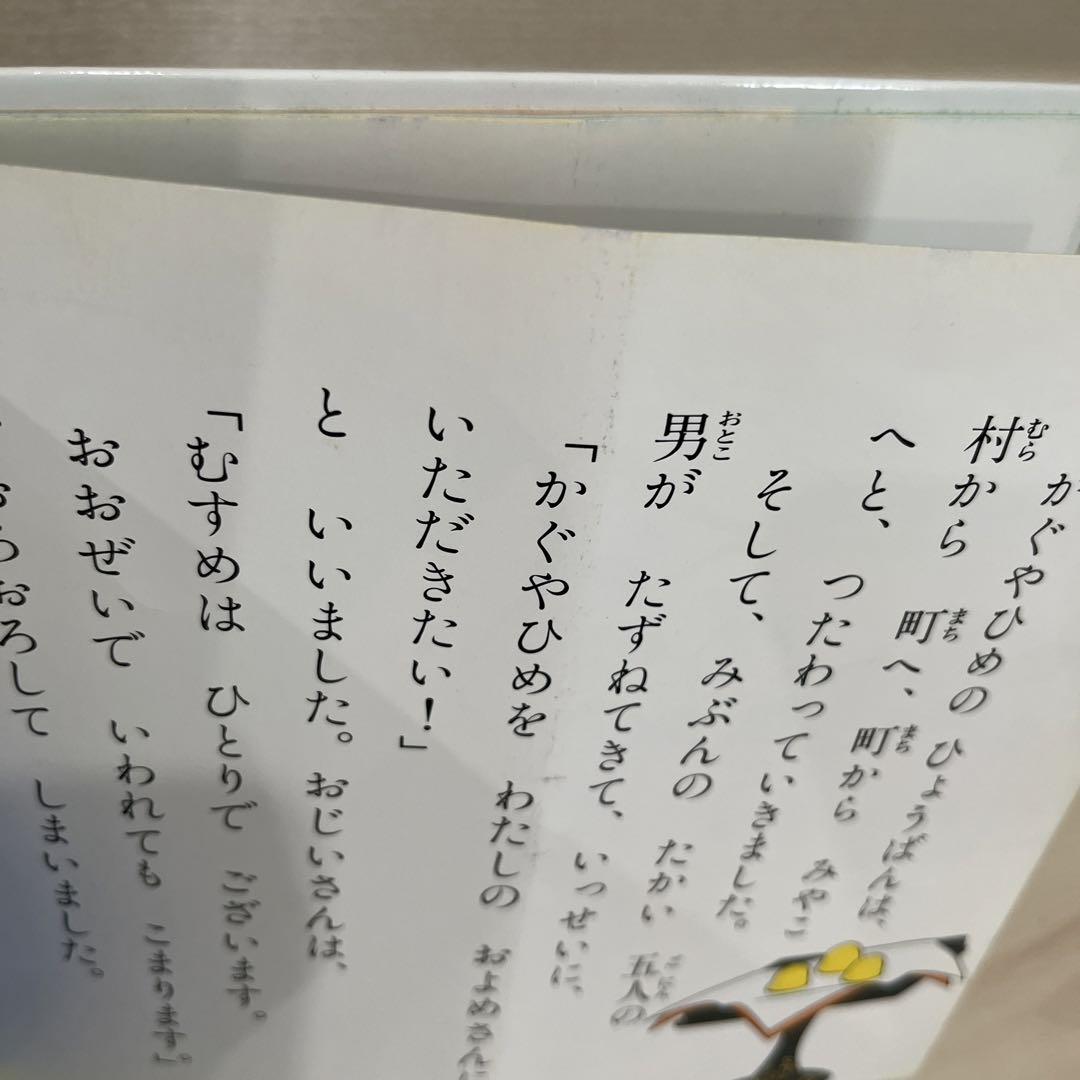 かぐやひめの ひょうばんは、
村から 町へ、町から みやこ
へと、つたわっていきました。
そして、みぶんの たかい 五人の
男が たずねてきて、いっせいに、
「かぐやひめを わたしの およめさんに
いただきたい！」
と いいました。おじいさんは、
「むすめは ひとりで ございます。
おおぜいで いわれても こまります」。
おろおろして しまいました。